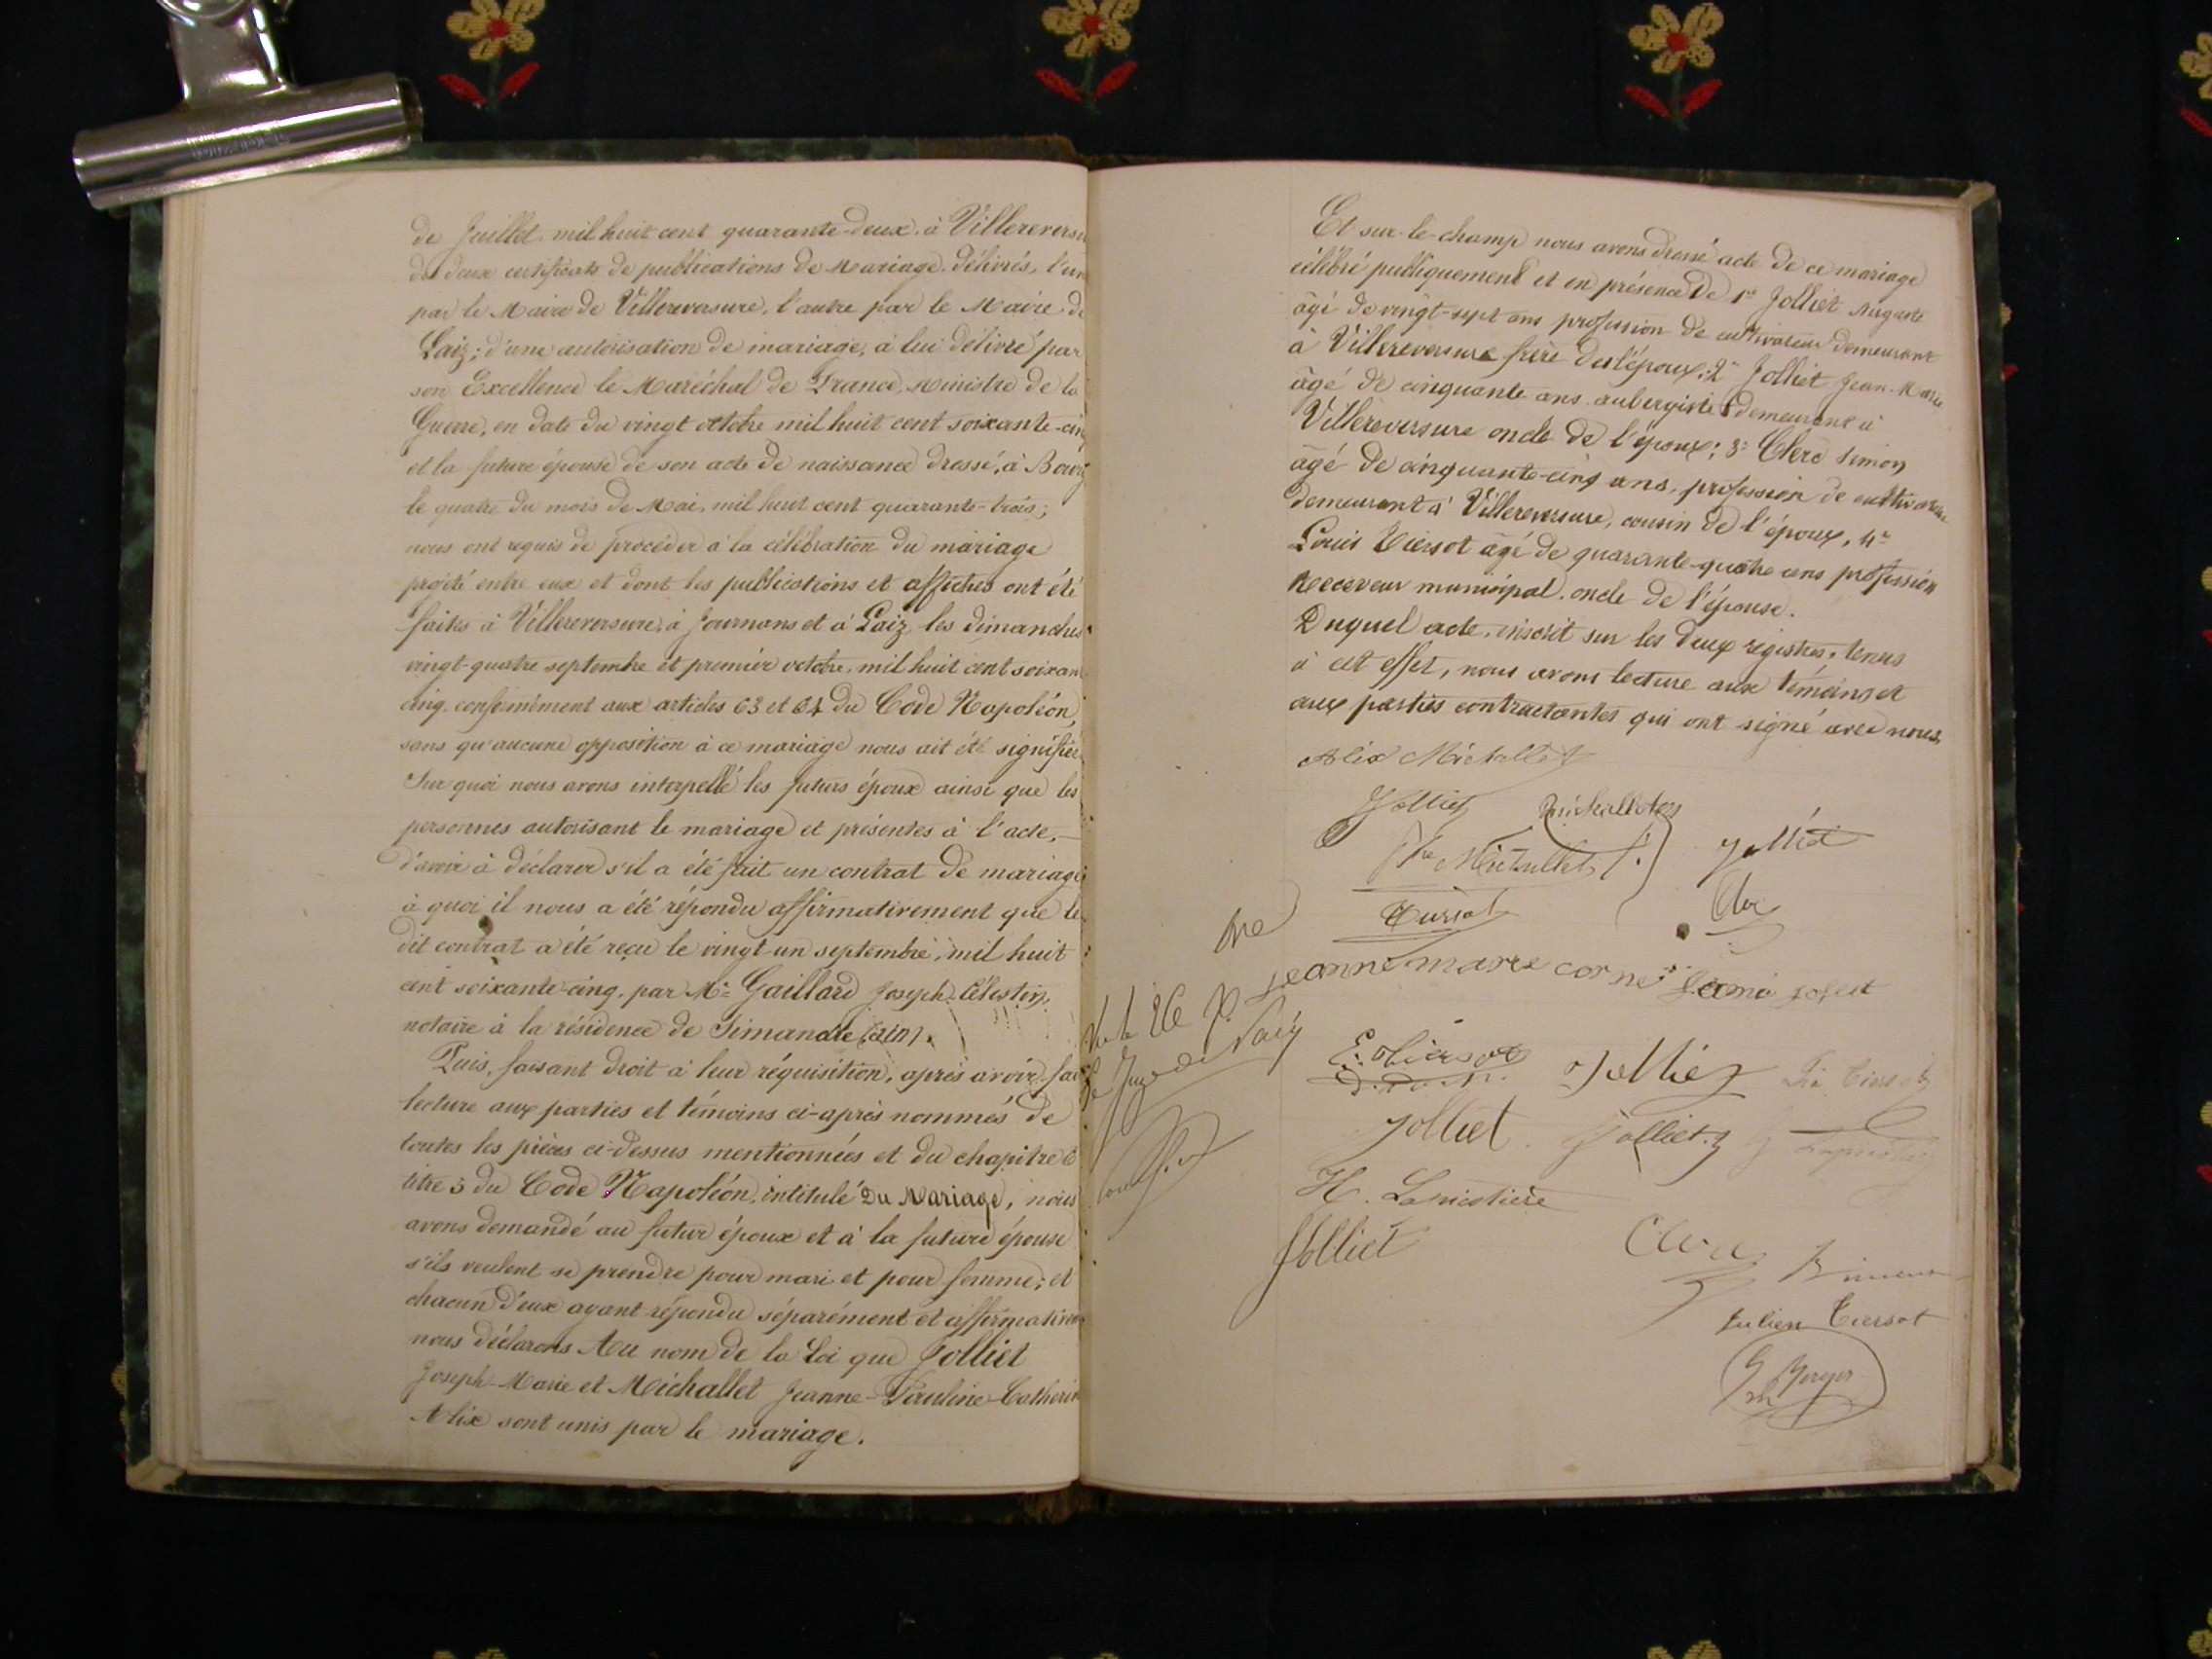 de Juillet mil huit cent quarante-deux à Villereversu
de deux certificats de publications de Mariage délivrés, l'un
par le Maire de Villereversure, l'autre par le Maire de
Laiz; d'une autorisation de mariage, à lui délivré par
son Excellence le Maréchal de France, Ministre de la
Guerre, en date du vingt octobre mil huit cent soixante-cin
et la future épouse de son acte de naissance dressé, à Bourg
le quatre du mois de Mai, mil huit cent quarante-trois;
nous ont requis de procéder à la célébration du mariage
projeté entre eux et dont les publications et affiches ont été
faites à Villereversure, à Journans et à Laiz les dimanches
vingt-quatre septembre et premier octobre, mil huit cent soixan
cinq, conformément aux articles 63 et 64 du Code Napoléon,
sans qu'aucune opposition à ce mariage nous ait été signifiée
Sur quoi nous avons interpellé les futurs époux ainsi que les
personnes autorisant le mariage et présentes à l'acte,
d'avoir à déclarer s'il a été fait un contrat de mariage
à quoi il nous a été répondu affirmativement que le
dit contrat a été reçu le vingt-un septembre, mil huit
cent soixante-cinq, par Me Gaillard Joseph Célestin,
notaire à la résidence de Simandre (Ain).
Puis, faisant droit à leur réquisition, après avoir fai
lecture aux parties et témoins ci-après nommés de
toutes les pièces ci-dessus mentionnées et du chapitre 6
titre 5 du Code Napoléon, intitulé Du Mariage, nous
avons demandé au futur époux et à la future épouse
s'ils veulent se prendre pour mari et pour femme; et
chacun d'eux ayant répondu séparément et affirmative
nous déclarons Au nom de la Loi que Jolliet
Joseph-Marie et Michallet Jeanne-Pauline-Catherin
Alix sont unis par le mariage.
Et sur-le-champ nous avons dressé acte de ce mariage
célébré publiquement et en présence de 1° Jolliet Auguste
âgé de vingt-sept ans profession de cultivateur demeurant
à Villereversure frère de l'époux; 2° Jolliet Jean-Marie
âgé de cinquante ans aubergiste demeurant à
Villereversure oncle de l'époux; 3° Clerc Simon
âgé de cinquante-cinq ans, profession de cultivateur
demeurant à Villereversure, cousin de l'époux, 4°
Louis Tiersot âgé de quarante-quatre ans profession
Receveur municipal, oncle de l'épouse.
Duquel acte, inscrit sur les deux registres, tenus
à cet effet, nous avons lecture aux témoins et
aux parties contractantes qui ont signé avec nous,
Alix Michallet
Jolliet Michallet
Michallet Jolliet
Tiersot Clerc
jeanne marie corne jolliet
Vu le
Le Juge de Paix
E. Tiersot Jolliet Tiersot
Jolliet Jolliet
H. Lapicotière
Jolliet Clerc
Julien Tiersot